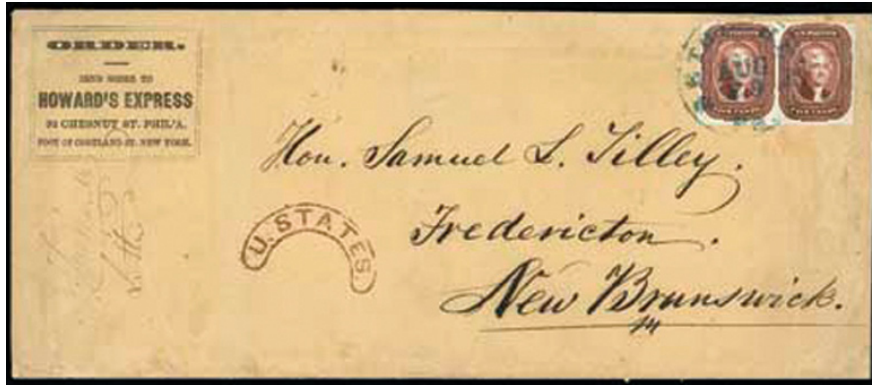 ORDER.
SEND GOODS TO
HOWARD'S EXPRESS
92 CHESNUT ST. PHIL'A.
FOOT OF CORTLAND ST. NEW YORK.
AUG
Hon. Samuel L. Tilley.
U. STATES.
Fredericton.
New Brunswick.